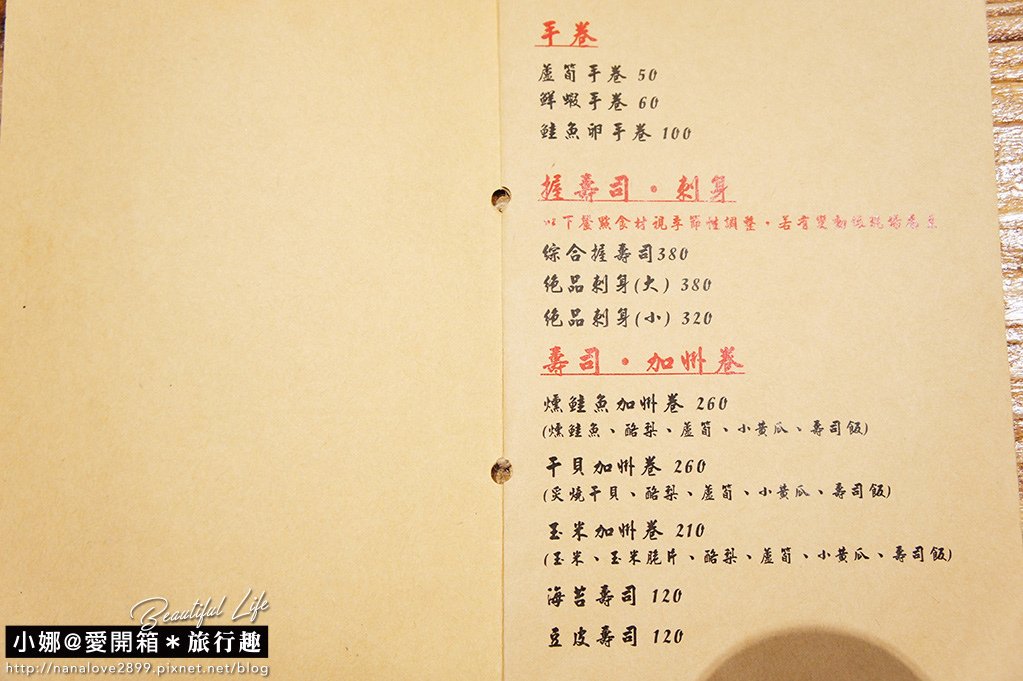 手卷
蘆筍手卷 50
鮮蝦手卷 60
鮭魚卵手卷 100
握壽司・刺身
以下餐點食材視季節性調整,若有變動依現場為主
綜合握壽司380
絕品刺身(大) 380
絕品刺身(小) 320
壽司・加州卷
燻鮭魚加州卷 260
(燻鮭魚、酪梨、蘆筍、小黃瓜、壽司飯)
干貝加州卷 260
(炙燒干貝、酪梨、蘆筍、小黃瓜、壽司飯)
玉米加州卷 210
(玉米、玉米脆片、酪梨、蘆筍、小黃瓜、壽司飯)
海苔壽司 120
豆皮壽司 120
Beautiful Life
小娜@愛開箱*旅行趣
http://nanalove2899.pixnet.net/blog